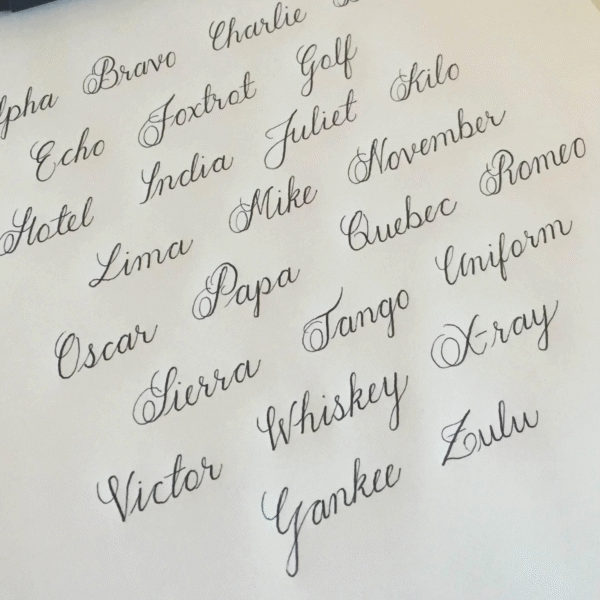 lpha Bravo Charlie
Echo Foxtrot Golf
Hotel India Juliet Kilo
Lima Mike November
Oscar Papa Quebec Romeo
Sierra Tango Uniform
Victor Whiskey X-ray
Yankee Zulu